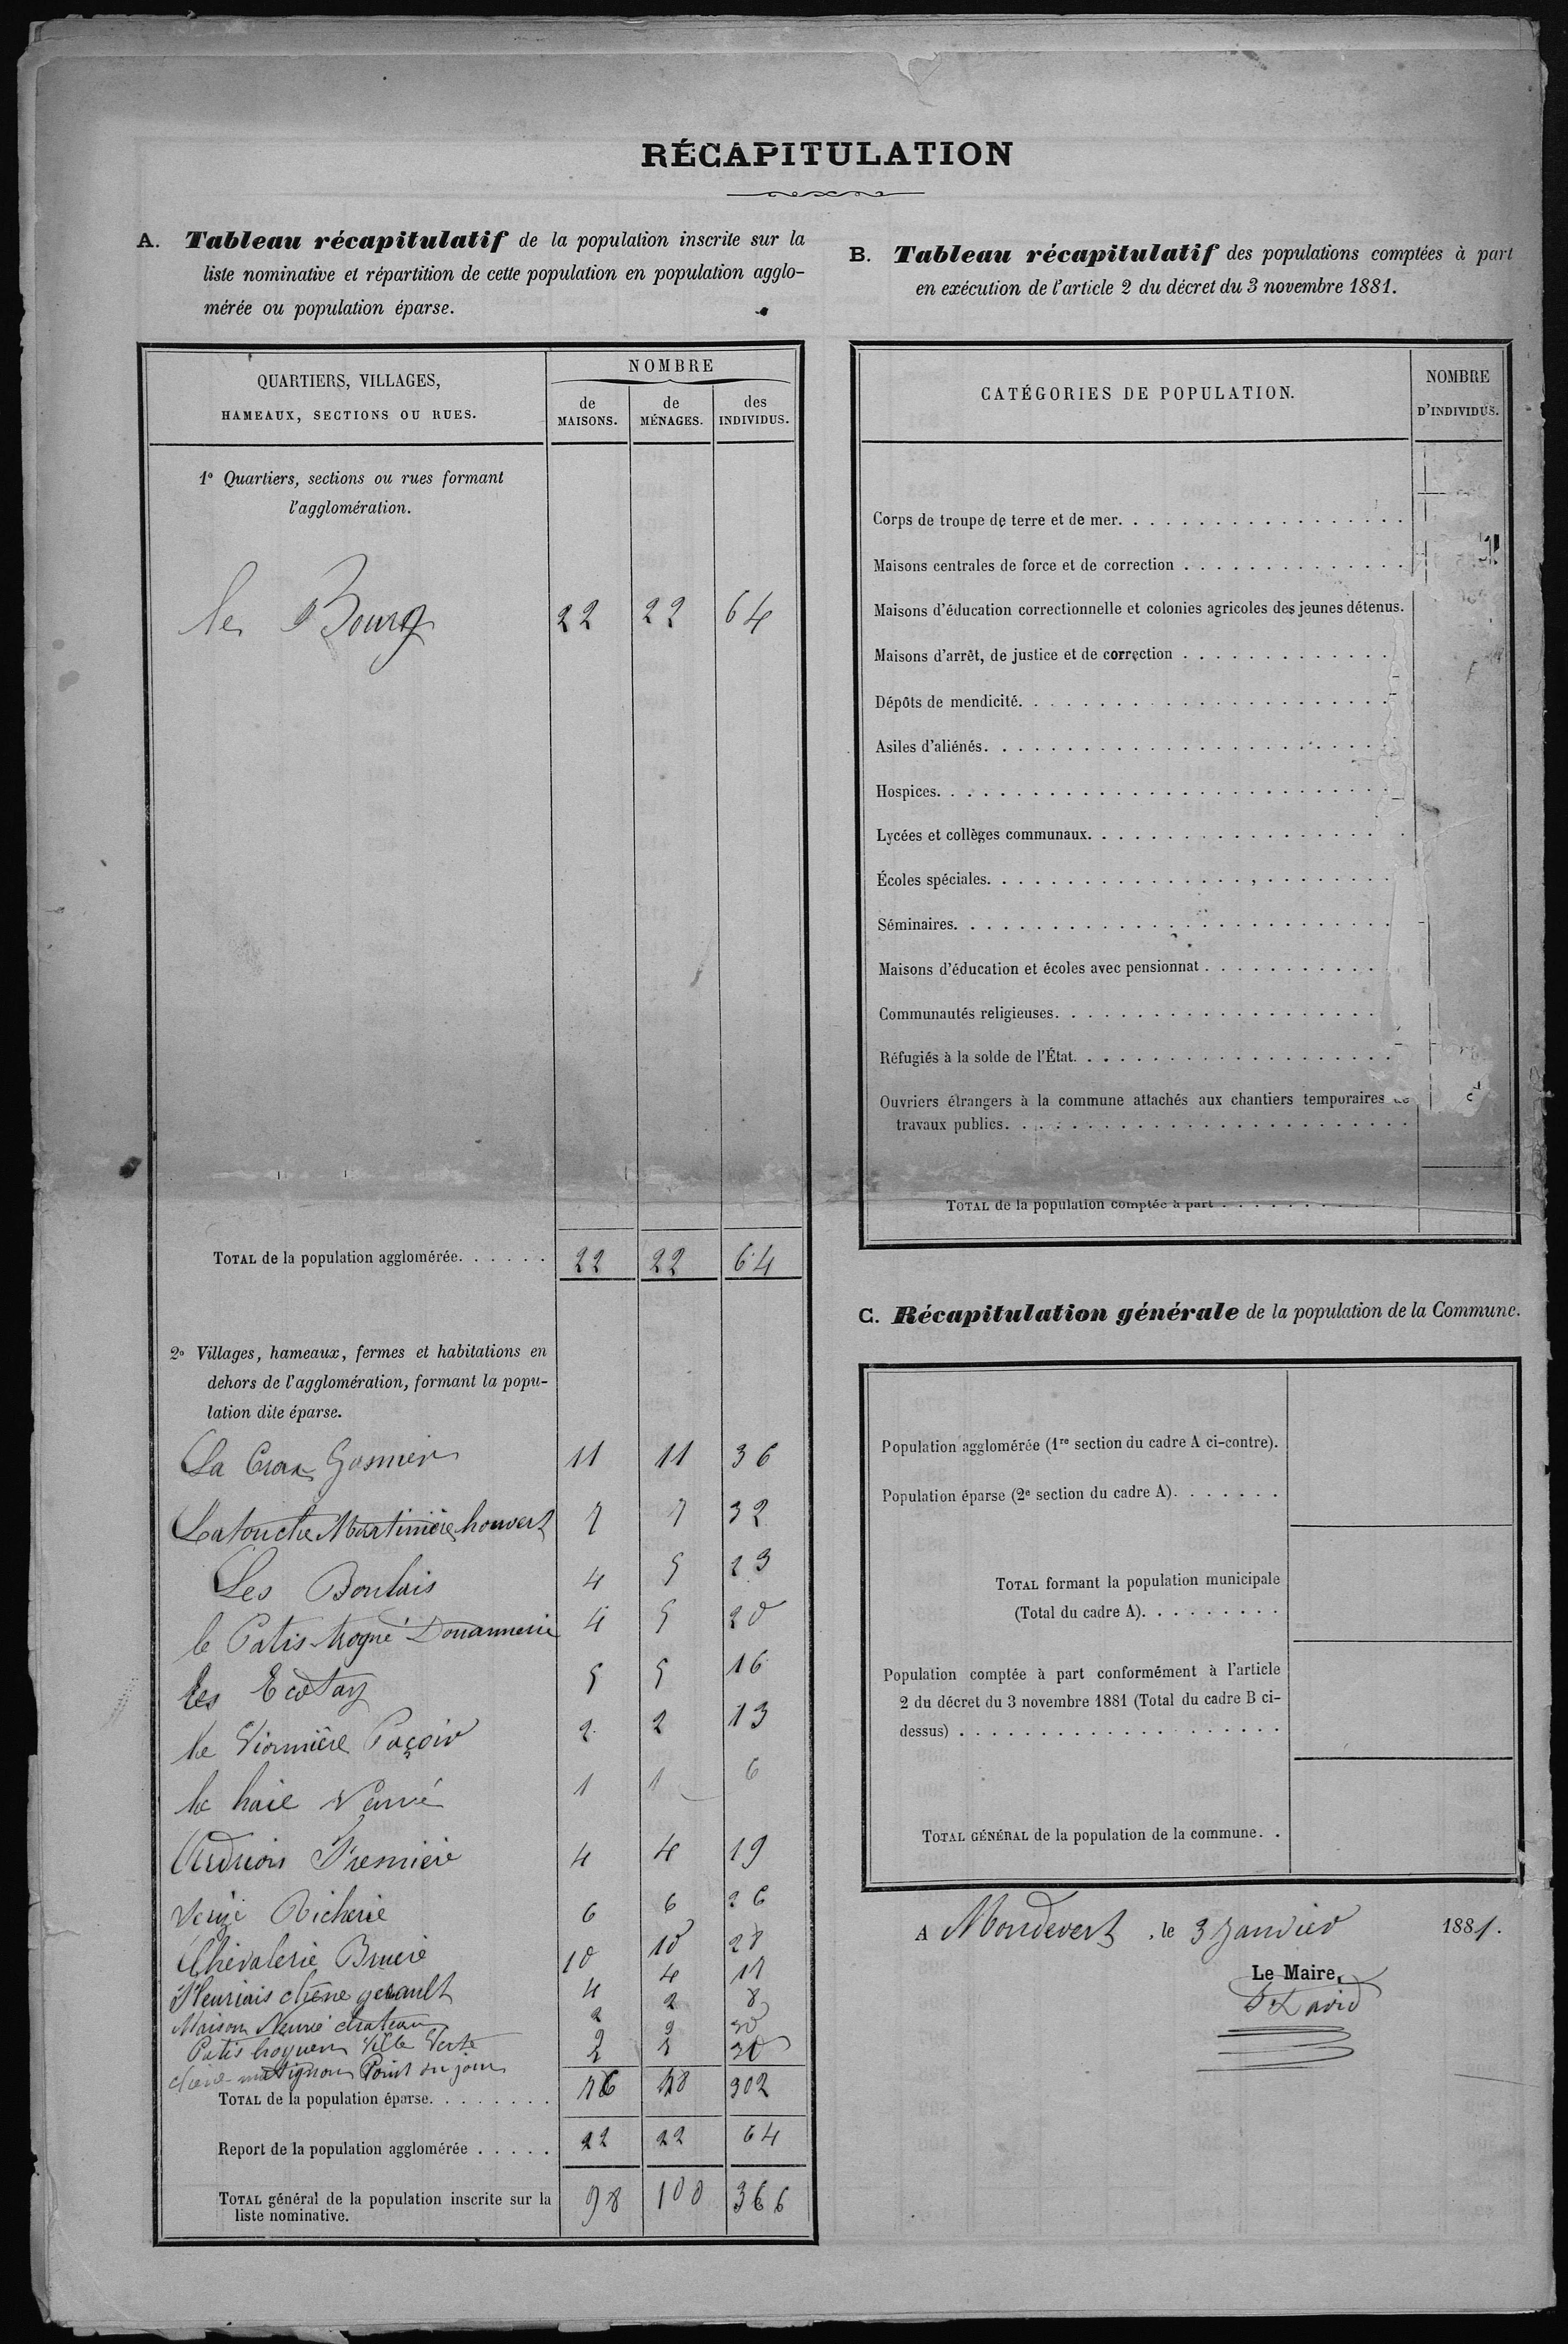 RÉCAPITULATION
A. Tableau récapitulatif de la population inscrite sur la
liste nominative et répartition de cette population en population agglo-
mérée ou population éparse.
QUARTIERS, VILLAGES,
HAMEAUX, SECTIONS OU RUES.
NOMBRE
de MAISONS. de MÉNAGES. des INDIVIDUS.
1º Quartiers, sections ou rues formant
l'agglomération.
le Bourg 22 22 64
TOTAL de la population agglomérée. . . . . . 22 22 64
2º Villages, hameaux, fermes et habitations en
dehors de l'agglomération, formant la popu-
lation dite éparse.
La Croix Gosmier 11 11 36
Latouche Martinière 7 7 32
Les Boulais 4 5 23
le Patis Douannerie 4 5 20
Les Ecotay 5 5 16
2 2 13
la haie 1 1 6
4 4 19
Richerie 6 6 26
Chevalerie Bruere 10 10 28
Fleuriais chêne gerault 4 4
Maison Neuve chateau 2 2 8
Patis Ville Verte
chêne Point du jour 2 2
TOTAL de la population éparse. . . . . . . . 76 78 302
Report de la population agglomérée . . . . . 22 22 64
TOTAL général de la population inscrite sur la
liste nominative. 98 100 366
B. Tableau récapitulatif des populations comptées à part
en exécution de l'article 2 du décret du 3 novembre 1881.
CATÉGORIES DE POPULATION.
NOMBRE
D'INDIVIDUS.
Corps de troupe de terre et de mer.
Maisons centrales de force et de correction
Maisons d'éducation correctionnelle et colonies agricoles des jeunes détenus.
Maisons d'arrêt, de justice et de correction
Dépôts de mendicité.
Asiles d'aliénés.
Hospices.
Lycées et collèges communaux.
Écoles spéciales.
Séminaires.
Maisons d'éducation et écoles avec pensionnat
Communautés religieuses.
Réfugiés à la solde de l'État.
Ouvriers étrangers à la commune attachés aux chantiers temporaires de
travaux publics.
TOTAL de la population comptée à part
C. Récapitulation générale de la population de la Commune.
Population agglomérée (1re section du cadre A ci-contre).
Population éparse (2e section du cadre A).
TOTAL formant la population municipale
(Total du cadre A).
Population comptée à part conformément à l'article
2 du décret du 3 novembre 1881 (Total du cadre B ci-
dessus)
TOTAL GÉNÉRAL de la population de la commune.
A Mondevert, le 3 Janvier 1881.
Le Maire,